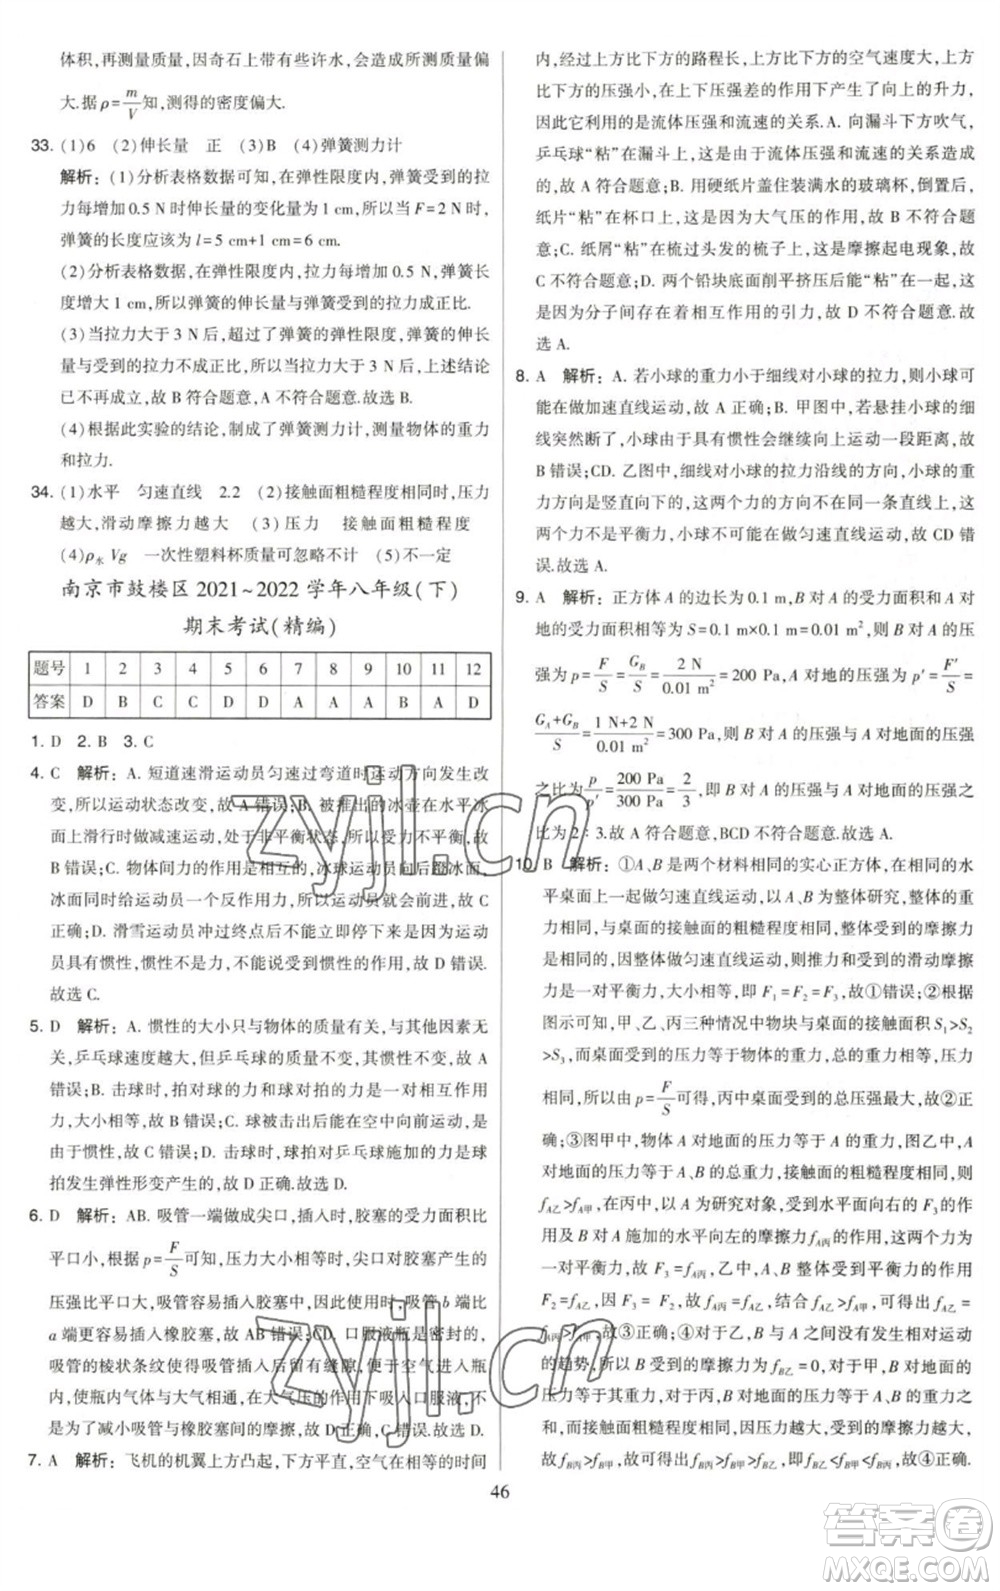 体积,再测量质量,因奇石上带有些许水,会造成所测质量偏
大.据ρ=m/V知,测得的密度偏大.
33. (1)6 (2)伸长量 正 (3)B (4)弹簧测力计
解析: (1)分析表格数据可知,在弹性限度内,弹簧受到的拉
力每增加 0.5 N 时伸长量的变化量为 1 cm,所以当 F=2 N 时,
弹簧的长度应该为 l=5 cm+1 cm=6 cm.
(2)分析表格数据,在弹性限度内,拉力每增加 0.5 N,弹簧长
度增大 1 cm,所以弹簧的伸长量与弹簧受到的拉力成正比.
(3)当拉力大于 3 N 后,超过了弹簧的弹性限度,弹簧的伸长
量与受到的拉力不成正比,所以当拉力大于 3 N 后,上述结论
已不再成立,故 B 符合题意,AC 不符合题意.故选 B.
(4)根据此实验的结论,制成了弹簧测力计,测量物体的重力
和拉力.
34. (1)水平 匀速直线 2.2 (2)接触面粗糙程度相同时,压力
越大,滑动摩擦力越大 (3)压力 接触面粗糙程度
(4)ρ水 Vg 一次性塑料杯质量可忽略不计 (5)不一定
南京市鼓楼区 2021~2022 学年八年级(下)
期末考试(精编)
题号 1 2 3 4 5 6 7 8 9 10 11 12
答案 D B C C D D A A A B A D
1. D 2. B 3. C
4. C 解析: A. 短道速滑运动员匀速过弯道时运动方向发生改
变,所以运动状态改变,故 A 错误;B. 被推出的冰壶在水平冰
面上滑行时做减速运动,处于非平衡状态,受力不平衡,故 B
错误;C. 物体间力的作用是相互的,冰球运动员用力蹬冰面,
冰面同时给运动员一个反作用力,力大小相等,所以故 C
正确;D. 滑雪运动员冲过终点后不能立即停下来,是由于运
动员具有惯性,惯性不是力,不能说受到惯性,故 D 错误.
故选 C.
5. D 解析: A. 惯性的大小只与物体的质量有关,与其他因素无
关,乒乓球速度越大,但乒乓球的质量不变,其惯性不变,故 A
错误;B. 击球时,拍对球的力和球对拍的力是一对相互作用
力,大小相等,故 B 错误;C. 球被击出后能在空中向前运动,是
由于惯性,故 C 错误;D. 击球时,球拍对乒乓球施加的力使球
拍发生弹性形变产生的,故 D 正确.故选 D.
6. D 解析: AB. 吸管一端做成尖口,插入时,胶塞的受力面积比
平口小,根据 p=F/S可知,压力大小相等时,尖口对胶塞产生的
压强比平口大,吸管容易插入胶塞中,因此使用时,吸管 b 端比
a 端更容易插入橡胶塞,故 AB 错误;CD. 口服液瓶是密封的,
吸管的棱状条纹使得胶塞与吸管留有缝隙,便于空气进入瓶
内,使瓶内气体与大气相通,在大气压的作用下吸入口服液,不
是为了减小吸管与橡胶塞间的摩擦,故 D 正确,C 错误.故选 D.
7. A 解析: 飞机的机翼上方凸起,下方平直,空气在相等的时间
内,经过上方比下方的路程长,上方比下方的空气速度大,上方
比下方的压强小,在上下压强差的作用下产生了向上的升力,
因此它利用的是流体压强和流速的关系.A. 向漏斗下方吹气,
乒乓球“粘”在漏斗上,这是由于流体压强和流速的关系造成
的,故 A 符合题意;B. 用硬纸片盖住装满水的玻璃杯,倒置后,
纸片“粘”在杯口上,是因为大气压的作用,故 B 不符合题
意;C. 纸屑“粘”在梳过头发的梳子上,是摩擦起电现象,故
C 不符合题意;D. 两个铅块底面削平挤压后能“粘”在一起,这
是因为分子间存在相互作用的引力,故 D 不符合题意.故
选 A.
8. A 解析: A. 若小球的重力小于细线对小球的拉力,则小球可
能在做加速直线运动,故 A 正确;B. 甲图中,若悬挂小球的细
线突然断了,小球由于具有惯性会继续向上运动一段距离,故
B 错误;CD. 乙图中,细线对小球的拉力沿线的方向,小球的重
力方向是竖直向下的,这两个力的方向不在同一条直线上,这
两个力不是平衡力,小球不可能在做匀速直线运动,故 CD 错
误.故选 A.
9. A 解析: 正方体 A 的边长为 0.1 m,B 对 A 的受力面积和 A 对
地的受力面积相等为 S=0.1 m×0.1 m=0.01 m²,则 B 对 A 的压
强为 p=F/S=G_B/S=2 N/0.01 m²=200 Pa,A 对地的压强为 p′=F′/S=
(G_A+G_B)/S=(1 N+2 N)/0.01 m²=300 Pa,则 B 对 A 的压强与 A 对地面的压强
之比为p/p′=200 Pa/300 Pa=2/3,即 B 对 A 的压强与 A 对地面的压强之
比为 2∶3.故 A 符合题意,BCD 不符合题意.故选 A.
10. B 解析: ①A、B 是两个材料相同的实心正方体,在相同的水
平桌面上一起做匀速直线运动,以 A、B 为整体研究,根据物体
与桌面的接触面的粗糙程度相同,所以整体受到的摩擦力
相同,因整体做匀速直线运动,则推力和受到的滑动摩擦
力是一对平衡力,大小相等,即 F₁=F₂=F₃,故①错误;②根据
图示可知,甲、乙、丙三种情况中物块与桌面的接触面积 S₁>S₂
>S₃,而桌面受到的压力等于物体的重力,大小相等,压力
相同,根据 p=F/S可得,丙中桌面受到的总压强最大,故②正
确;③图甲中,物体 A 对地面的压力等于 A 的重力,图乙中,A
对地面的压力等于 A、B 的总重力,接触面的粗糙程度相同,则
f_A乙>f_A甲,在丙中,以 A 为研究对象,受到水平面向右的 F₃ 的作
用以及水平桌面对 A 的水平向左的摩擦力 f_A丙的作用,这两力
为一对平衡力,故 F₃=f_A丙,乙中,A 水平方向上受到的作用力
F₂=f_A乙,因为 F₂=F₃,故 f_A丙=f_A乙,结合 f_A乙>f_A甲,可得出 f_A乙
=f_A丙>f_A甲,故③正确;④由于乙中,A 与 B 之间没有发生相对运动
的趋势,所以 B 受到 A 的摩擦力大小 f_B乙=0,对于甲,B 对地面的
压力等于 B 的重力,对于丙,B 对 A 的压力等于 B 的重力之
和,且接触面的粗糙程度相同,因压力越大,摩擦力越大,
故 f_B丙=f_B甲,因此可得出摩擦力 f_B乙<f_B甲=f_B丙,故④正确.
46
zyjl.cn
zyjl.cn
答案圈
MXQE.COM